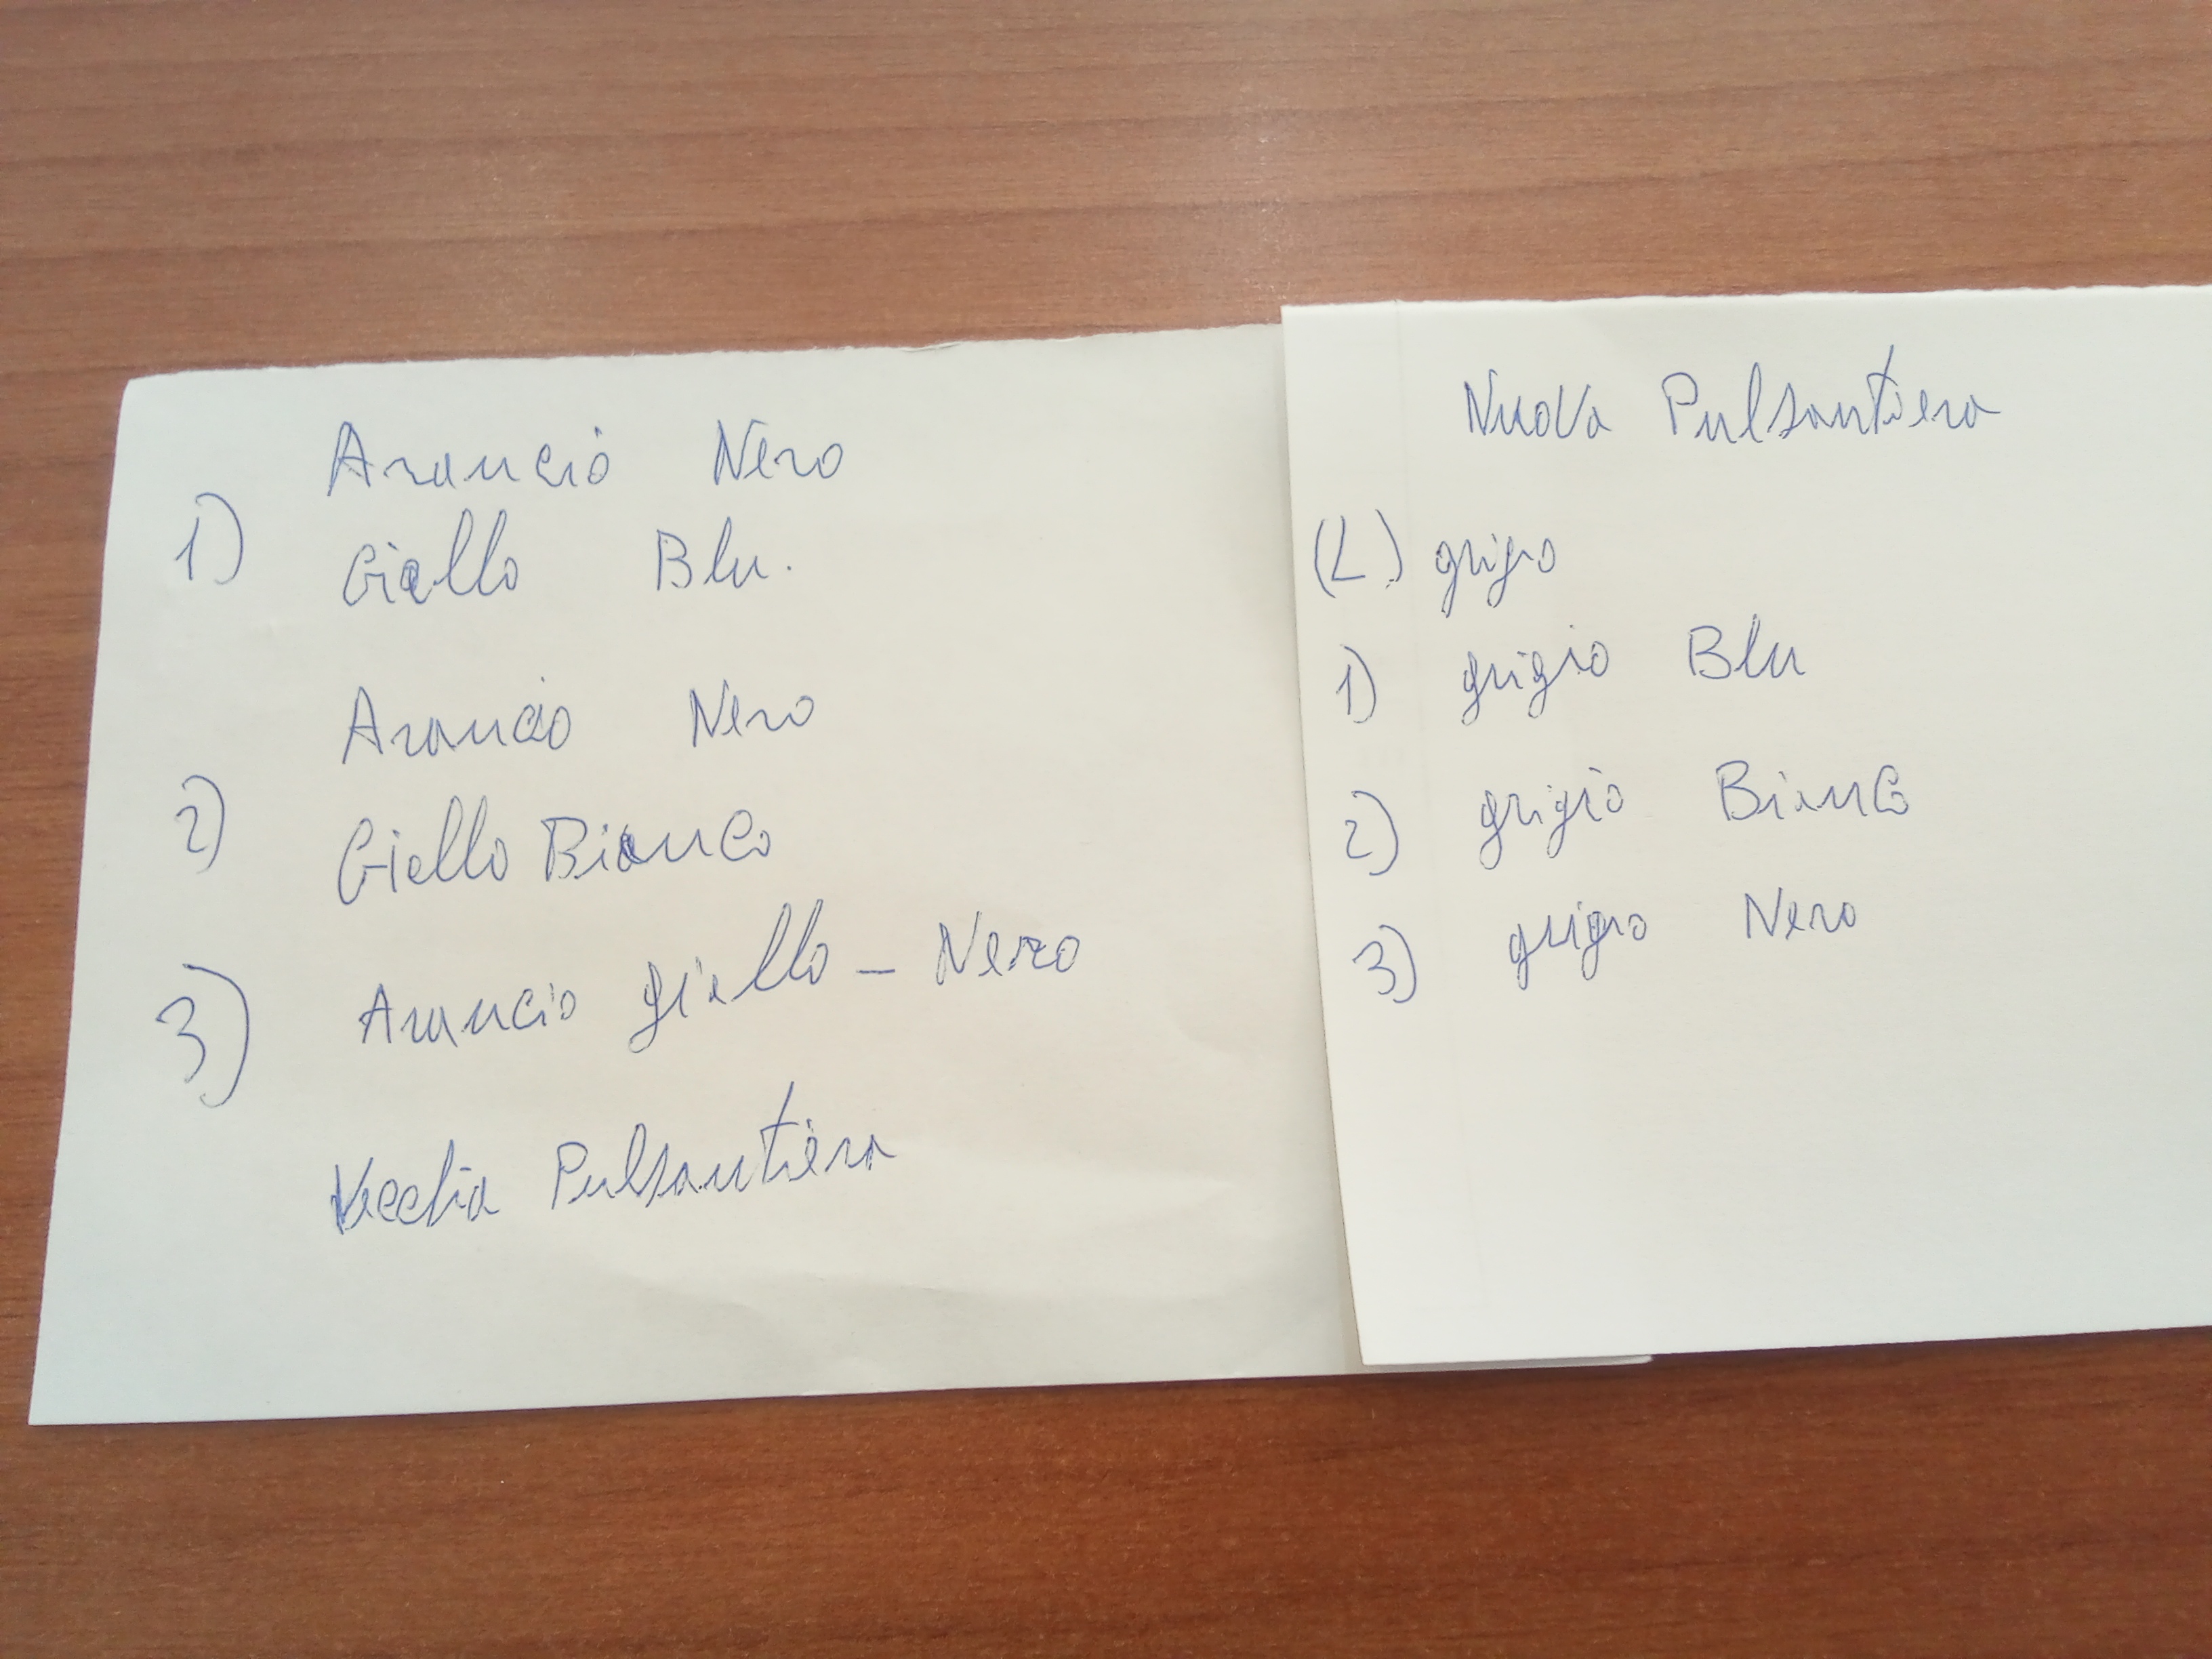 Arancio Nero
1) Giallo Blu.
Arancio Nero
2) Giallo Bianco
3) Arancio giallo - Nero
Vecchia Pulsantiera
Nuova Pulsantiera
(L) grigio
1) grigio Blu
2) grigio Bianco
3) grigio Nero